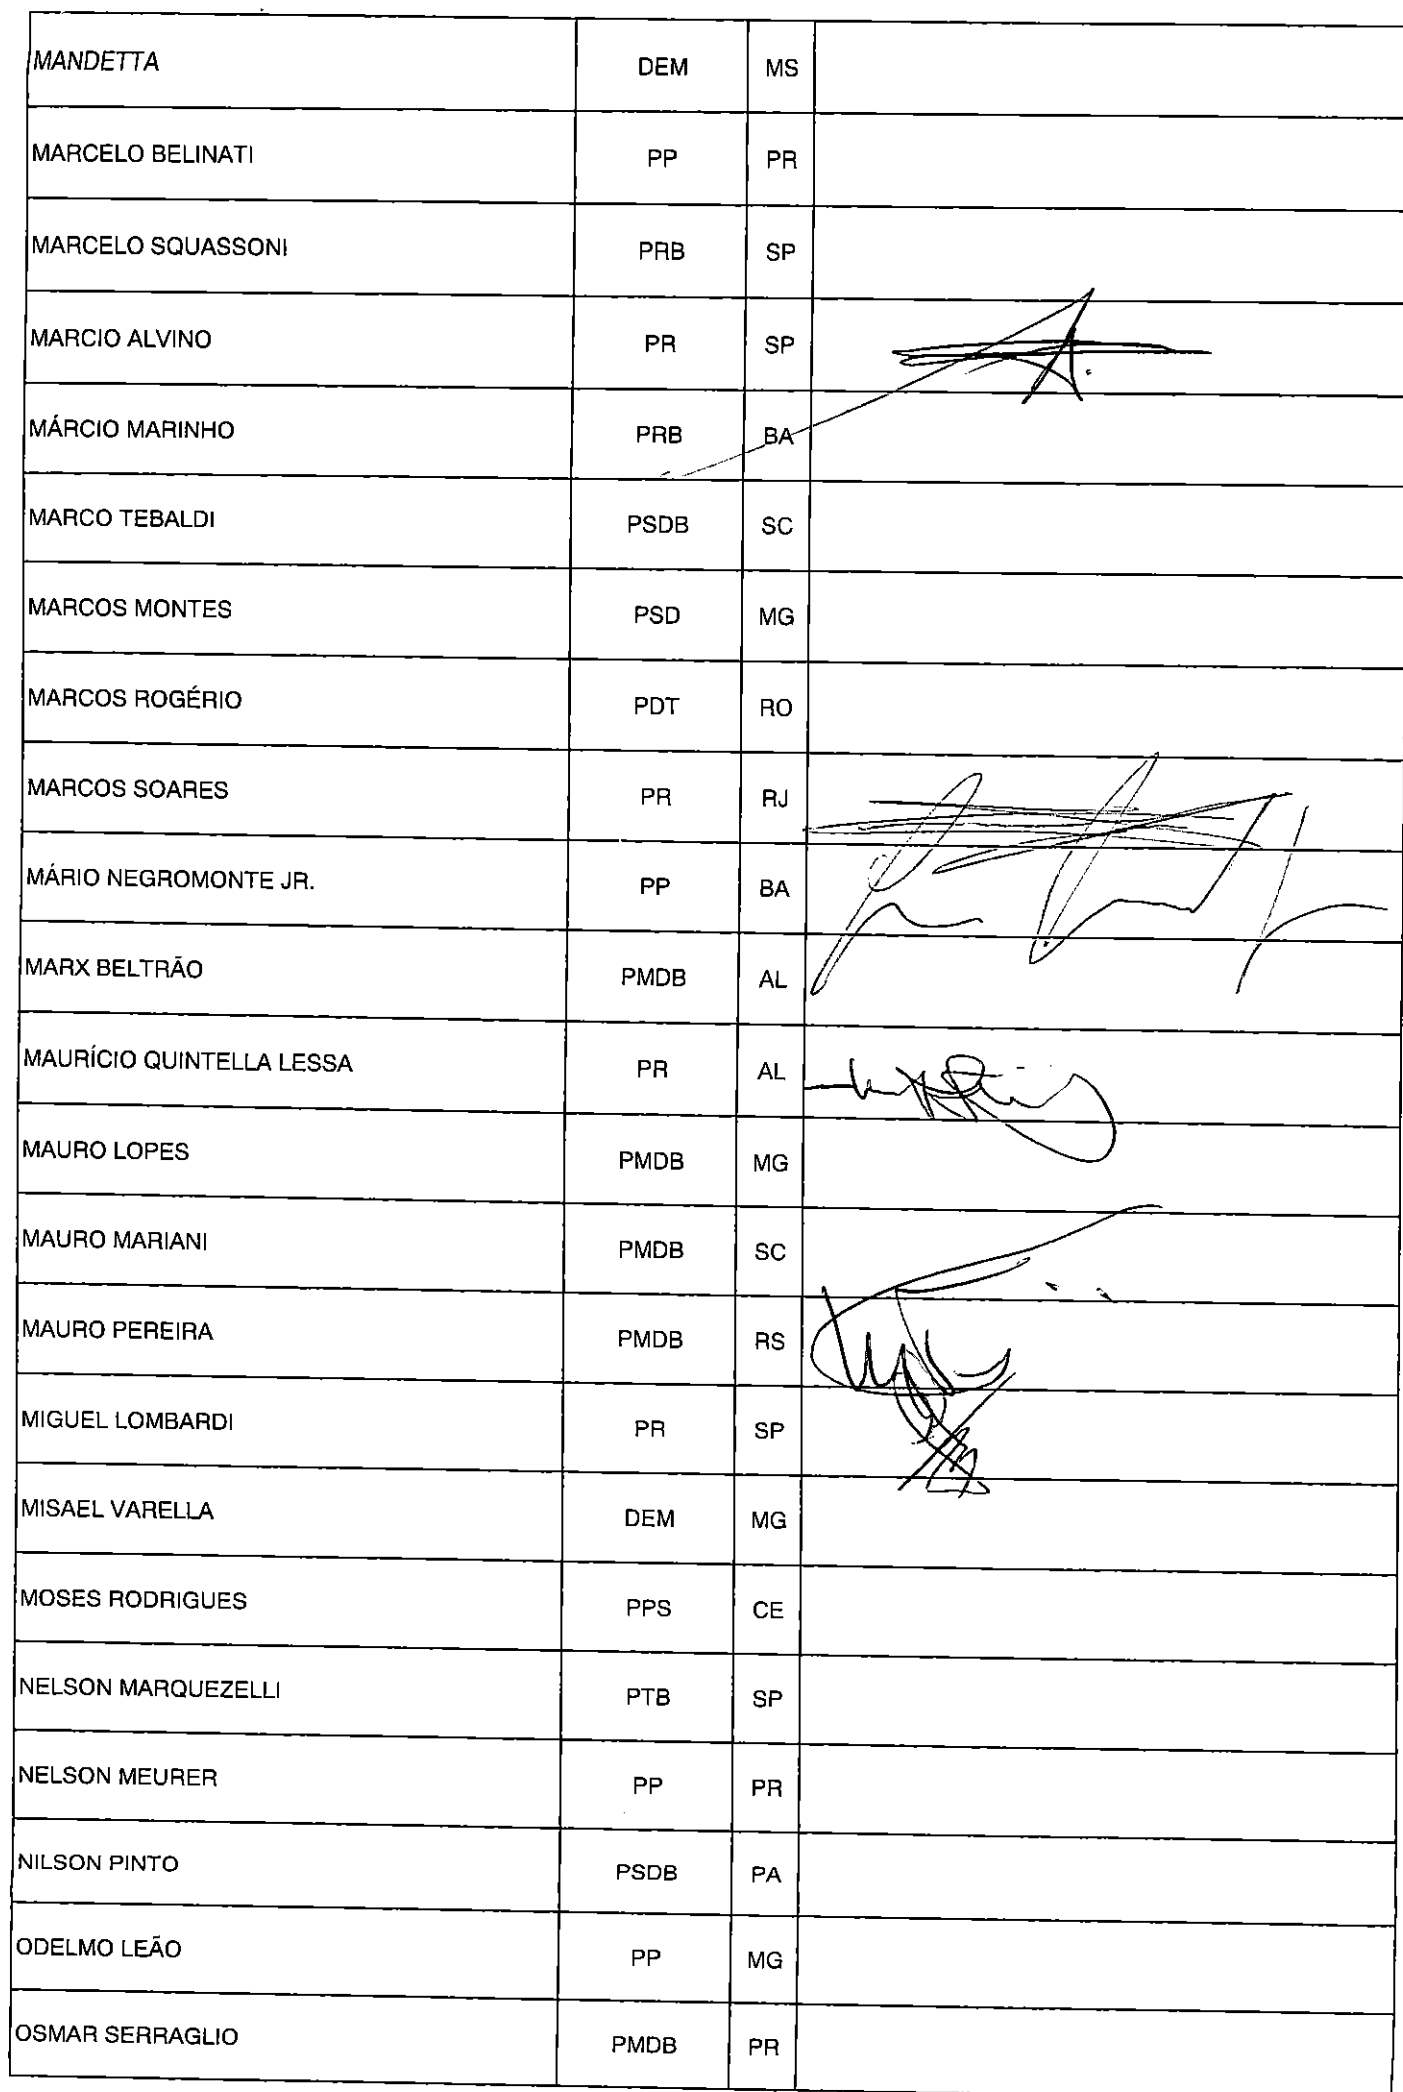 MANDETTA DEM MS
MARCELO BELINATI PP PR
MARCELO SQUASSONI PRB SP
MARCIO ALVINO PR SP
MÁRCIO MARINHO PRB BA
MARCO TEBALDI PSDB SC
MARCOS MONTES PSD MG
MARCOS ROGÉRIO PDT RO
MARCOS SOARES PR RJ
MÁRIO NEGROMONTE JR. PP BA
MARX BELTRÃO PMDB AL
MAURÍCIO QUINTELLA LESSA PR AL
MAURO LOPES PMDB MG
MAURO MARIANI PMDB SC
MAURO PEREIRA PMDB RS
MIGUEL LOMBARDI PR SP
MISAEL VARELLA DEM MG
MOSES RODRIGUES PPS CE
NELSON MARQUEZELLI PTB SP
NELSON MEURER PP PR
NILSON PINTO PSDB PA
ODELMO LEÃO PP MG
OSMAR SERRAGLIO PMDB PR